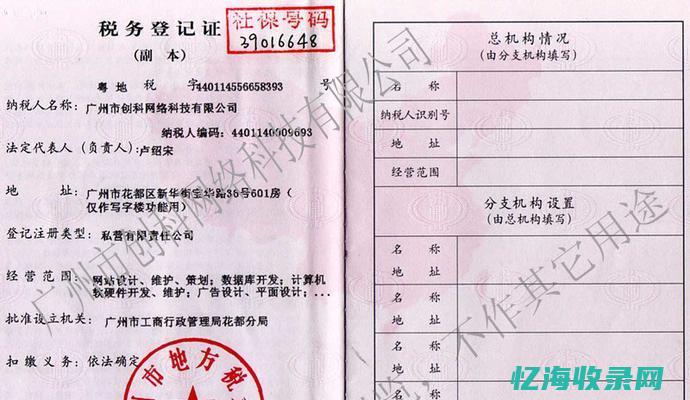 税务登记证
(副 本)
社保号码
39016648
粤 地 税 字 440114556658393 号
纳税人名称: 广州市创科网络科技有限公司
纳税人编码: 4401140009693
法定代表人(负责人): 卢绍宋
地 址: 广州市花都区新华街宝华路36号601房(
仅作写字楼功能用)
登记注册类型: 私营有限责任公司
经营范围: 网站设计、维护、策划; 数据库开发; 计算机
软硬件开发、维护; 广告设计、平面设计; ...
批准设立机关: 广州市工商行政管理局花都分局
扣缴义务: 依法确定
市地方税
总机构情况
(由分支机构填写)
名 称
纳税人识别号
地 址
经营范围
分支机构设置
(由总机构填写)
名 称
地 址
名 称
地 址
名 称
地 址
名 称
广州市创科网络科技有限公司
不作其它用途
忆海收录网